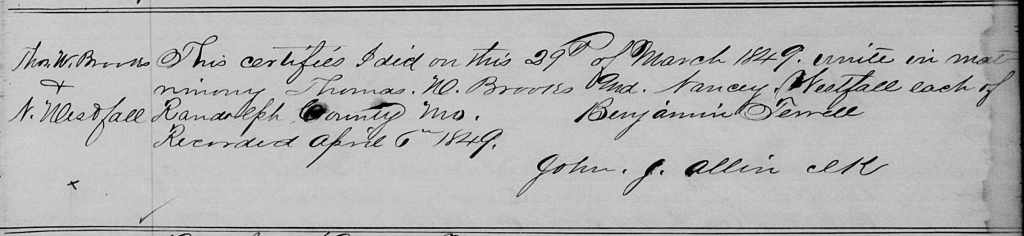 Thos W. Brooks
&
N. Westfall
This certifies I did on this 29th of March 1849. unite in mat
rimony Thomas. W. Brooks And. Nancey. Westfall each of
Randolph County Mo. Benjamin Terrell
Recorded April 6th 1849.
John. J. Allin Clk
x